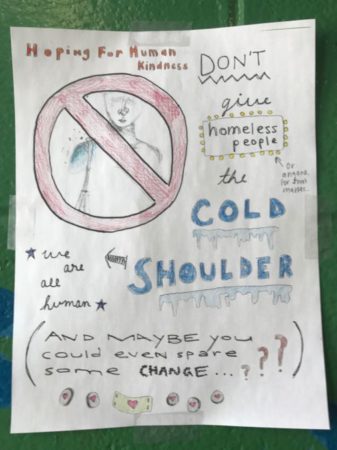 Hoping For Human
Kindness
DON'T
give
homeless
people
or
anyone
for that
matter
the
COLD
SHOULDER
we
are
all
human
(AND MAYBE YOU
could even spare
some CHANGE...???)